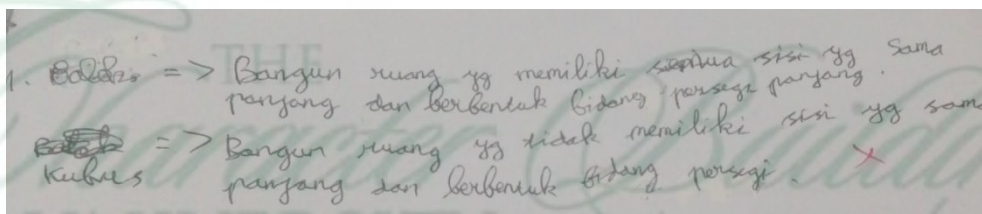 1. Balok => Bangun ruang yg memiliki semua sisi yg sama
panjang dan berbentuk bidang persegi panjang.
=> Bangun ruang yg tidak memiliki sisi yg sama
Kubus panjang dan berbentuk bidang persegi.
THE
Character Buildi